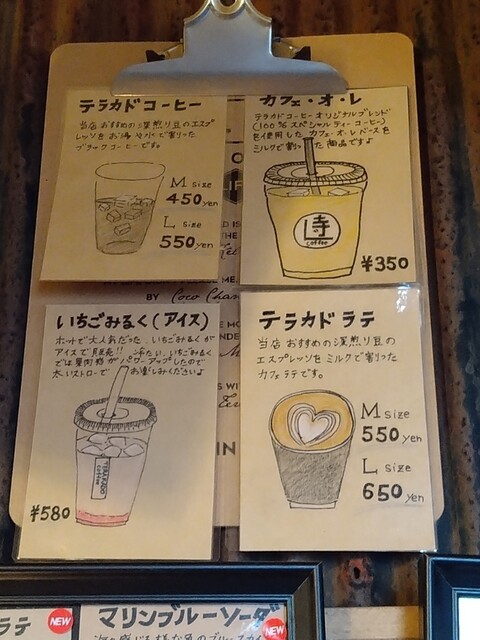 テラカドコーヒー
当店おすすめの深煎り豆のエスプ
レッソをお湯or水で割った
ブラックコーヒーです。
M size
450yen
L size
550yen
カフェ・オ・レ
テラカドコーヒーオリジナルブレンド
(100%スペシャルティーコーヒー)
を使用したカフェオレベースを
ミルクで割った商品ですよ
寺
coffee
¥350
BY Coco Chan
いちごみるく(アイス)
ホットで大人気だった、いちごみるくが
アイスで見参!!冷たい、いちごみるく
では果肉感がパワーアップしたので
太いストローでお楽しみくださいよ
TERAKADO
coffee
¥580
テラカドラテ
当店おすすめの深煎り豆の
エスプレッソをミルクで割った
カフェラテです。
M size
550yen
L size
650yen
ラテ
NEW
マリンブルーソーダ
NEW